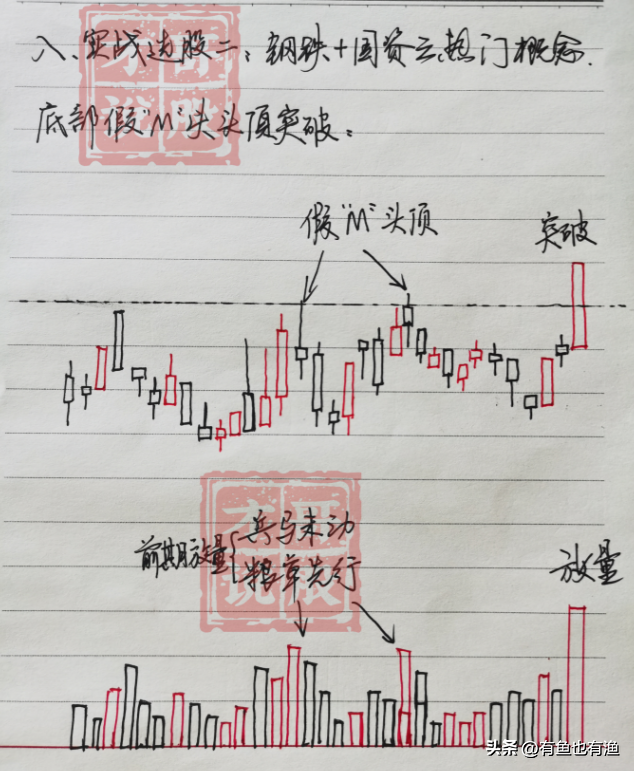 八、实战选股二:钢铁+国资云热门概念.
底部假"M"头头顶突破:
假"M"头顶
突破
前期放量
兵马未动
粮草先行
放量
头条 @有鱼也有渔